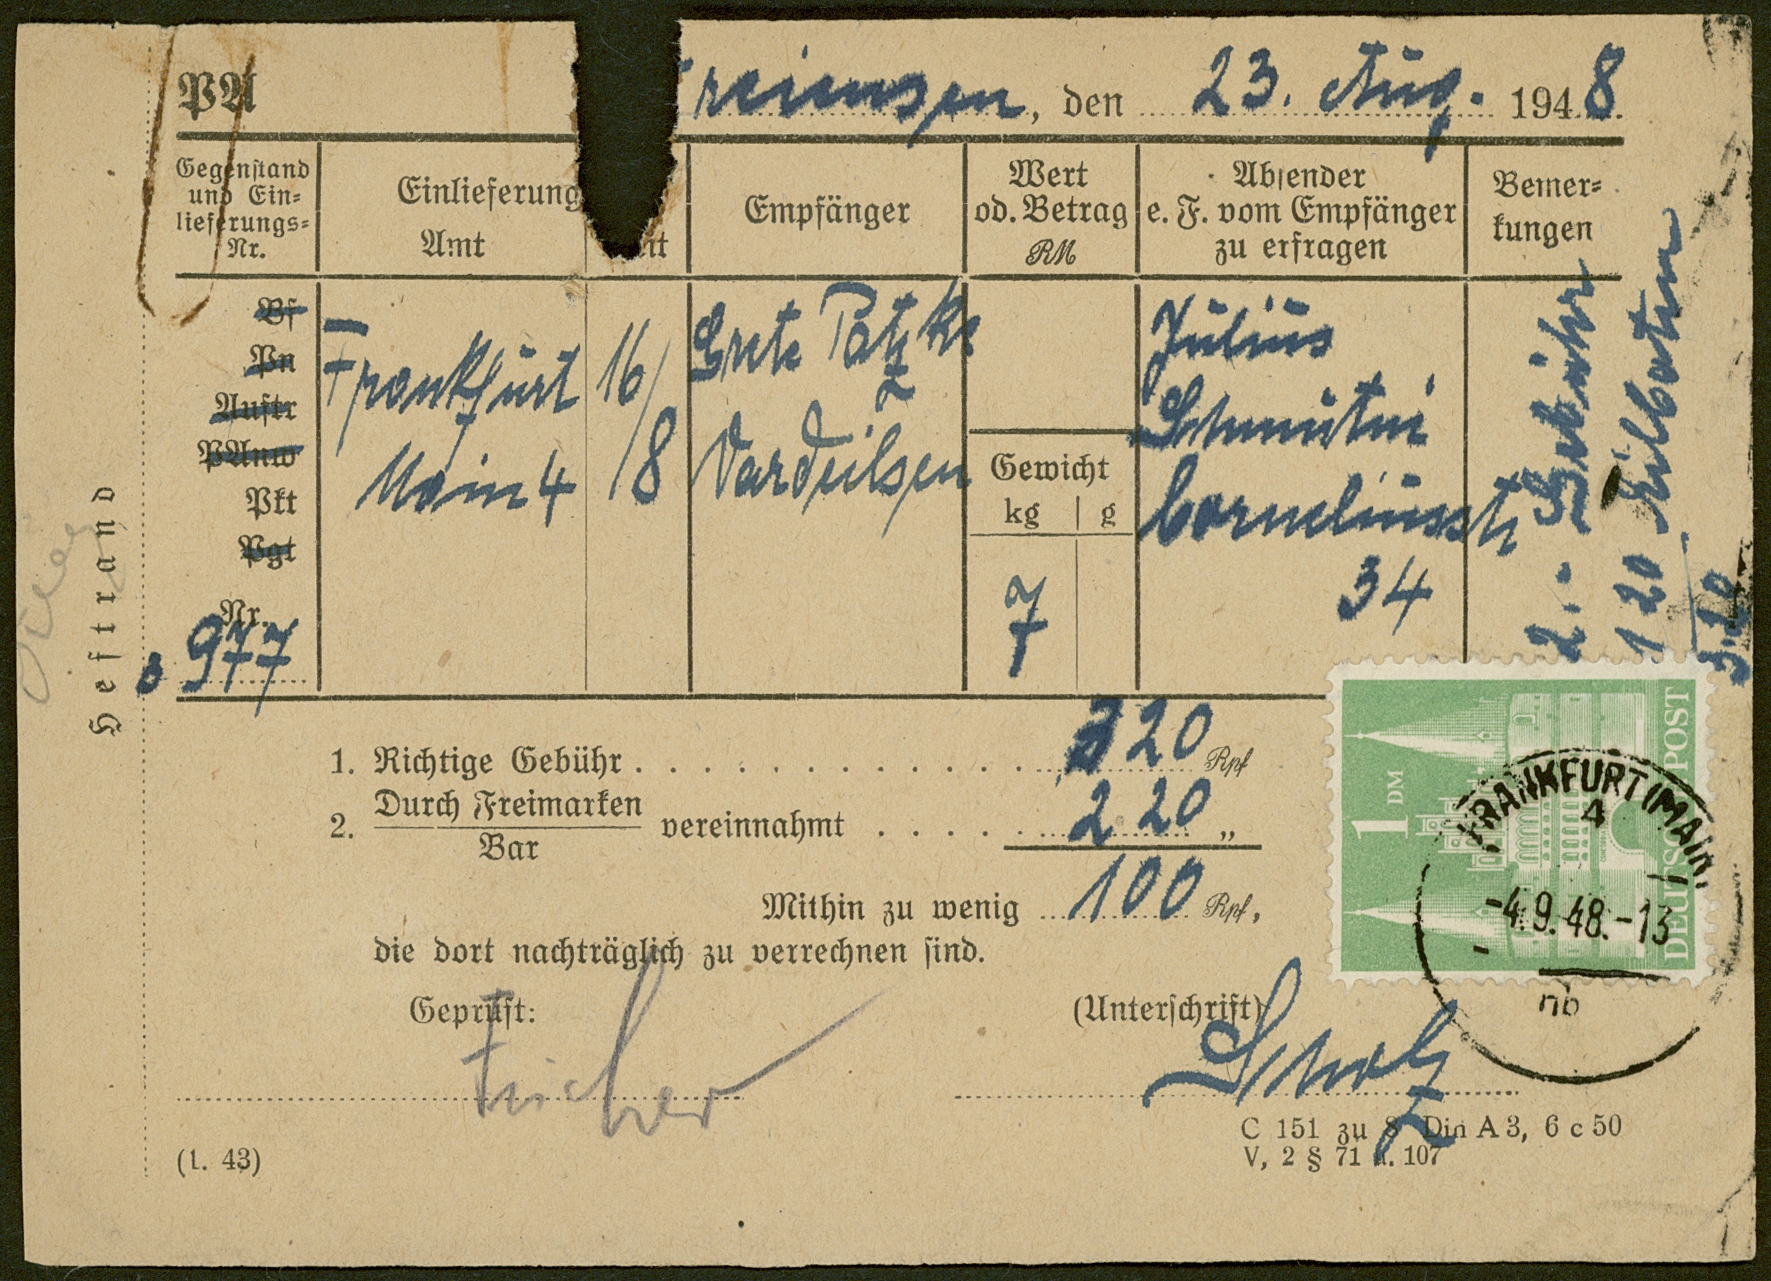 PA
reiensen, den 23. Aug. 1948.
Gegenstand und Ein-lieferungs-Nr.
Einlieferung
Amt
Empfänger
Wert od. Betrag RM
Absender e. F. vom Empfänger zu erfragen
Bemer-kungen
Bf
Pn
Auftr
PAnw
Pkt
Pgt
Nr.
977
Frankfurt
Main 4
16/
/8
Grete
Vardeilsen
Gewicht
kg | g
7
Julius
Corneliusstr
34
2.- Gebühr
1 20 Eilboten
3.20
Heftrand
1. Richtige Gebühr 320 Rpf
2. Durch Freimarken
Bar
vereinnahmt 2 20 "
Mithin zu wenig 100 Rpf,
die dort nachträglich zu verrechnen sind.
Geprüft:
(Unterschrift)
Fischer
Scholz
C 151 zu S Din A 3, 6 c 50
V, 2 § 71 u. 107
(1. 43)
1 DM
DEUTSCHE POST
FRANKFURT (MAIN)
4
-4.9.48.-13
nb